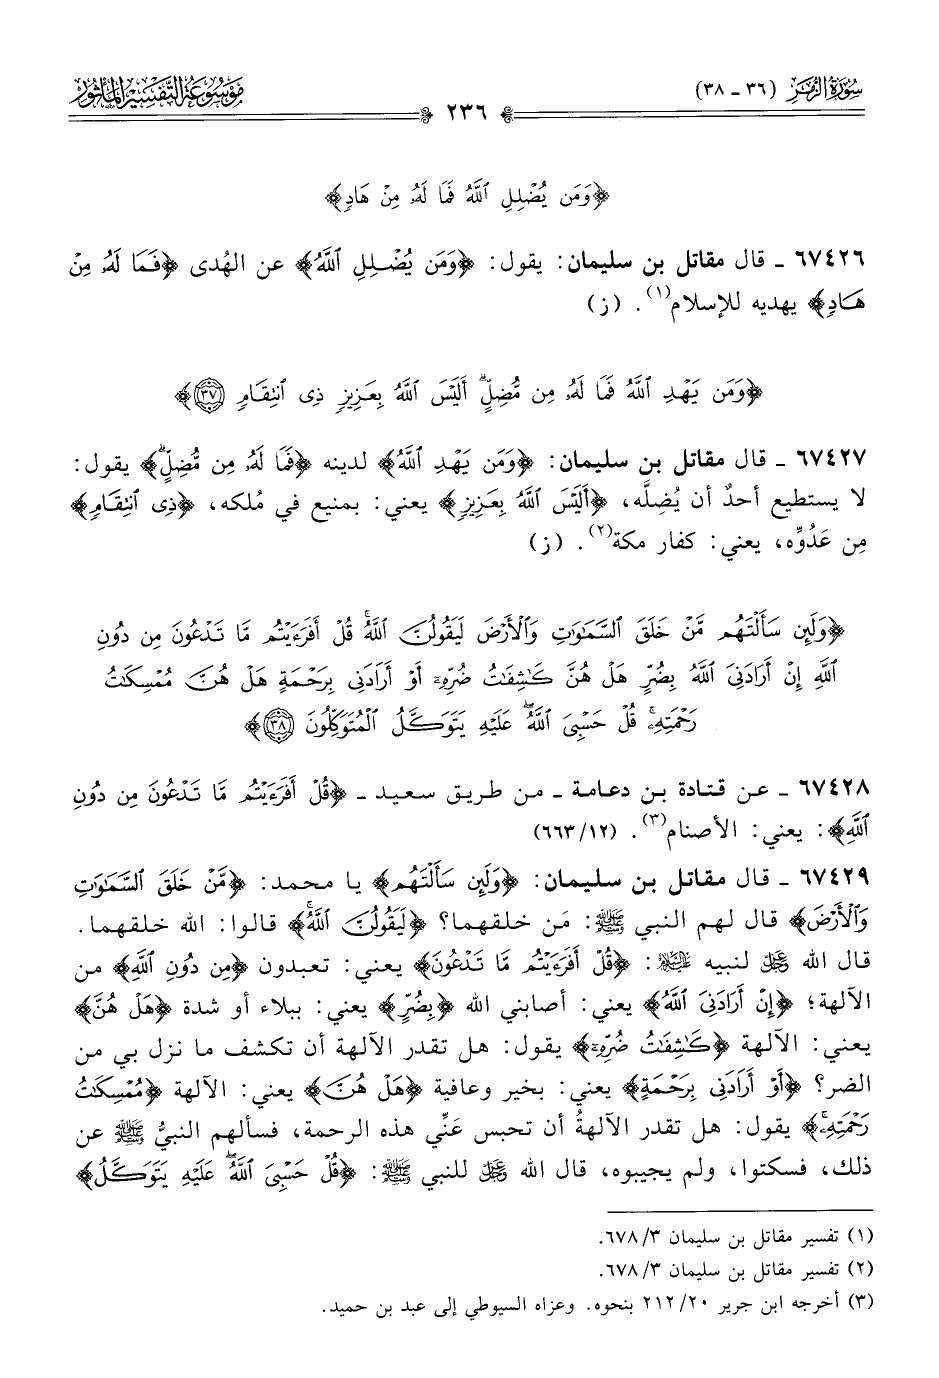 سُورَةُ الزُّمَرِ (٣٦ - ٣٨)
٢٣٦
مَوْسُوعَةُ التَّفْسِيرِ المَأْثُور
﴿وَمَن يُضْلِلِ ٱللَّهُ فَمَا لَهُۥ مِنْ هَادٍ﴾
٦٧٤٢٦ - قال مقاتل بن سليمان: يقول: ﴿وَمَن يُضْلِلِ ٱللَّهُ﴾ عن الهُدى ﴿فَمَا لَهُۥ مِنْ
هَادٍ﴾ يهديه للإسلام(١). (ز)
﴿وَمَن يَهْدِ ٱللَّهُ فَمَا لَهُۥ مِن مُّضِلٍّۗ أَلَيْسَ ٱللَّهُ بِعَزِيزٍ ذِى ٱنتِقَامٍ ٣٧﴾
٦٧٤٢٧ - قال مقاتل بن سليمان: ﴿وَمَن يَهْدِ ٱللَّهُ﴾ لدينه ﴿فَمَا لَهُۥ مِن مُّضِلٍّۗ﴾ يقول:
لا يستطيع أحدٌ أن يُضِلَّه، ﴿أَلَيْسَ ٱللَّهُ بِعَزِيزٍ﴾ يعني: بمنيع في مُلكه، ﴿ذِى ٱنتِقَامٍ﴾
مِن عَدُوِّه، يعني: كفار مكة(٢). (ز)
﴿وَلَئِن سَأَلْتَهُم مَّنْ خَلَقَ ٱلسَّمَٰوَٰتِ وَٱلْأَرْضَ لَيَقُولُنَّ ٱللَّهُۚ قُلْ أَفَرَءَيْتُم مَّا تَدْعُونَ مِن دُونِ
ٱللَّهِ إِنْ أَرَادَنِىَ ٱللَّهُ بِضُرٍّ هَلْ هُنَّ كَٰشِفَٰتُ ضُرِّهِۦٓ أَوْ أَرَادَنِى بِرَحْمَةٍ هَلْ هُنَّ مُمْسِكَٰتُ
رَحْمَتِهِۦۚ قُلْ حَسْبِىَ ٱللَّهُۖ عَلَيْهِ يَتَوَكَّلُ ٱلْمُتَوَكِّلُونَ ٣٨﴾
٦٧٤٢٨ - عن قتادة بن دعامة - من طريق سعيد - ﴿قُلْ أَفَرَءَيْتُم مَّا تَدْعُونَ مِن دُونِ
ٱللَّهِ﴾: يعني: الأصنام(٣). (٦٦٣/١٢)
٦٧٤٢٩ - قال مقاتل بن سليمان: ﴿وَلَئِن سَأَلْتَهُم﴾ يا محمد: ﴿مَّنْ خَلَقَ ٱلسَّمَٰوَٰتِ
وَٱلْأَرْضَ﴾ قال لهم النبي ﷺ: مَن خلقهما؟ ﴿لَيَقُولُنَّ ٱللَّهُۚ﴾ قالوا: الله خلقهما.
قال الله ﷿ لنبيه ﷺ: ﴿قُلْ أَفَرَءَيْتُم مَّا تَدْعُونَ﴾ يعني: تعبدون ﴿مِن دُونِ ٱللَّهِ﴾ من
الآلهة؛ ﴿إِنْ أَرَادَنِىَ ٱللَّهُ﴾ يعني: أصابني الله ﴿بِضُرٍّ﴾ يعني: ببلاء أو شدة ﴿هَلْ هُنَّ﴾
يعني: الآلهة ﴿كَٰشِفَٰتُ ضُرِّهِۦٓ﴾ يقول: هل تقدر الآلهة أن تكشف ما نزل بي من
الضر؟ ﴿أَوْ أَرَادَنِى بِرَحْمَةٍ﴾ يعني: بخير وعافية ﴿هَلْ هُنَّ﴾ يعني: الآلهة ﴿مُمْسِكَٰتُ
رَحْمَتِهِۦۚ﴾ يقول: هل تقدر الآلهةُ أن تحبس عَنِّي هذه الرحمة، فسألهم النبيُّ ﷺ عن
ذلك، فسكتوا، ولم يجيبوه، قال الله ﷿ للنبي ﷺ: ﴿قُلْ حَسْبِىَ ٱللَّهُۖ عَلَيْهِ يَتَوَكَّلُ﴾
(١) تفسير مقاتل بن سليمان ٦٧٨/٣.
(٢) تفسير مقاتل بن سليمان ٦٧٨/٣.
(٣) أخرجه ابن جرير ٢١٢/٢٠ بنحوه. وعزاه السيوطي إلى عبد بن حميد.